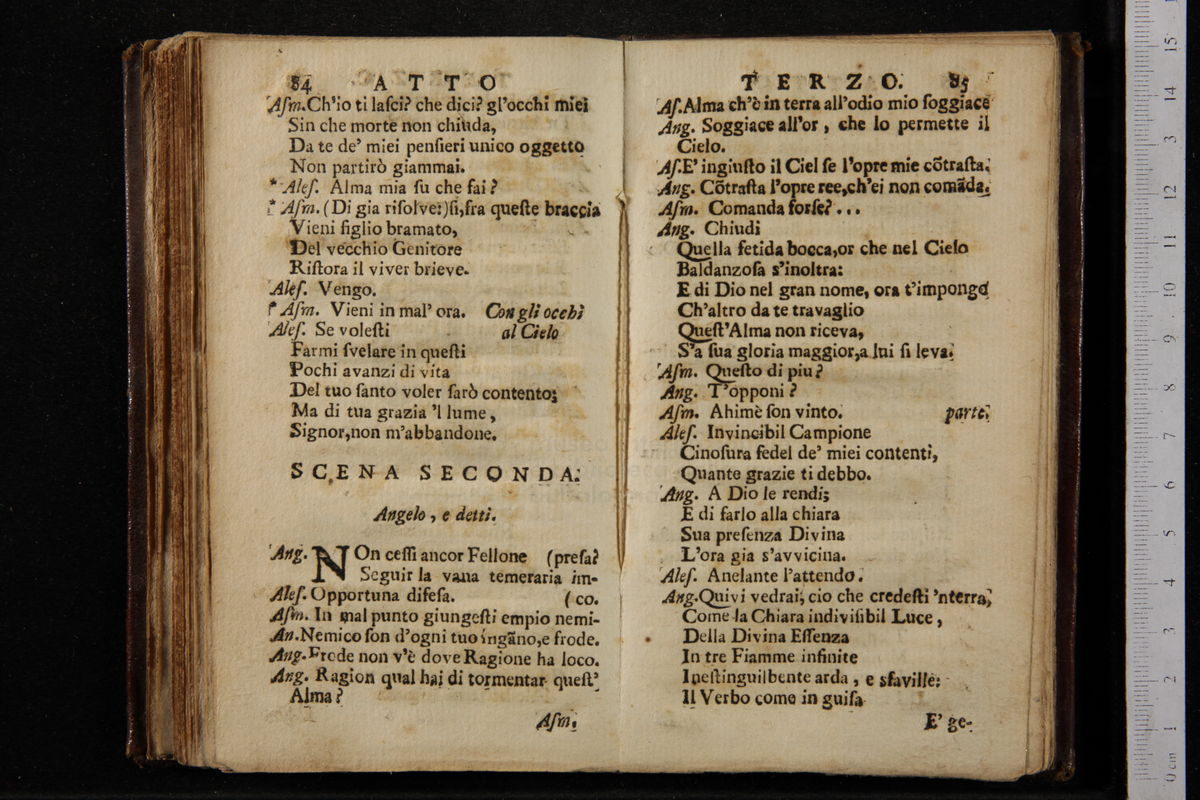 84 ATTO
Aſm. Ch'io ti laſci? che dici? gl'occhi miei
Sin che morte non chiuda,
Da te de' miei penſieri unico oggetto
Non partirò giammai.
* Aleſ. Alma mia ſu che fai?
* Aſm. (Di gia riſolvei) ſi, fra queſte braccia
Vieni figlio bramato,
Del vecchio Genitore
Riſtora il viver brieve.
Aleſ. Vengo.
* Aſm. Vieni in mal' ora. Con gli occhi
Aleſ. Se voleſti al Cielo
Farmi ſvelare in queſti
Pochi avanzi di vita
Del tuo ſanto voler ſarò contento;
Ma di tua grazia 'l lume,
Signor, non m'abbandone.
SCENA SECONDA.
Angelo, e detti.
Ang. NOn ceſſi ancor Fellone (preſa?
Seguir la vana temeraria im-
Aleſ. Opportuna difeſa. (co.
Aſm. In mal punto giungeſti empio nemi-
An. Nemico ſon d'ogni tuo ingãno, e frode.
Ang. Frode non v'è dove Ragione ha loco.
Ang. Ragion qual hai di tormentar queſt'
Alma?
Aſm.
TERZO. 85
Aſ. Alma ch'è in terra all'odio mio ſoggiace
Ang. Soggiace all'or, che lo permette il
Cielo.
Aſ. E' ingiuſto il Ciel ſe l'opre mie cõtraſta.
Ang. Cõtraſta l'opre ree, ch'ei non comãda.
Aſm. Comanda forſe?...
Ang. Chiudi
Quella fetida bocca, or che nel Cielo
Baldanzoſa s'inoltra:
E di Dio nel gran nome, ora t'impongo
Ch'altro da te travaglio
Queſt'Alma non riceva,
S'a ſua gloria maggior, a lui ſi leva.
Aſm. Queſto di piu?
Ang. T'opponi?
Aſm. Ahimè ſon vinto. parte.
Aleſ. Invincibil Campione
Cinoſura fedel de' miei contenti,
Quante grazie ti debbo.
Ang. A Dio le rendi;
E di farlo alla chiara
Sua preſenza Divina
L'ora gia s'avvicina.
Aleſ. Anelante l'attendo.
Ang. Quivi vedrai, cio che credeſti 'nterra,
Come la Chiara indiviſibil Luce,
Della Divina Eſſenza
In tre Fiamme infinite
Ineſtinguilbente arda, e sfaville:
Il Verbo come in guiſa
E' ge-
0 cm 1 2 3 4 5 6 7 8 9 10 11 12 13 14 15